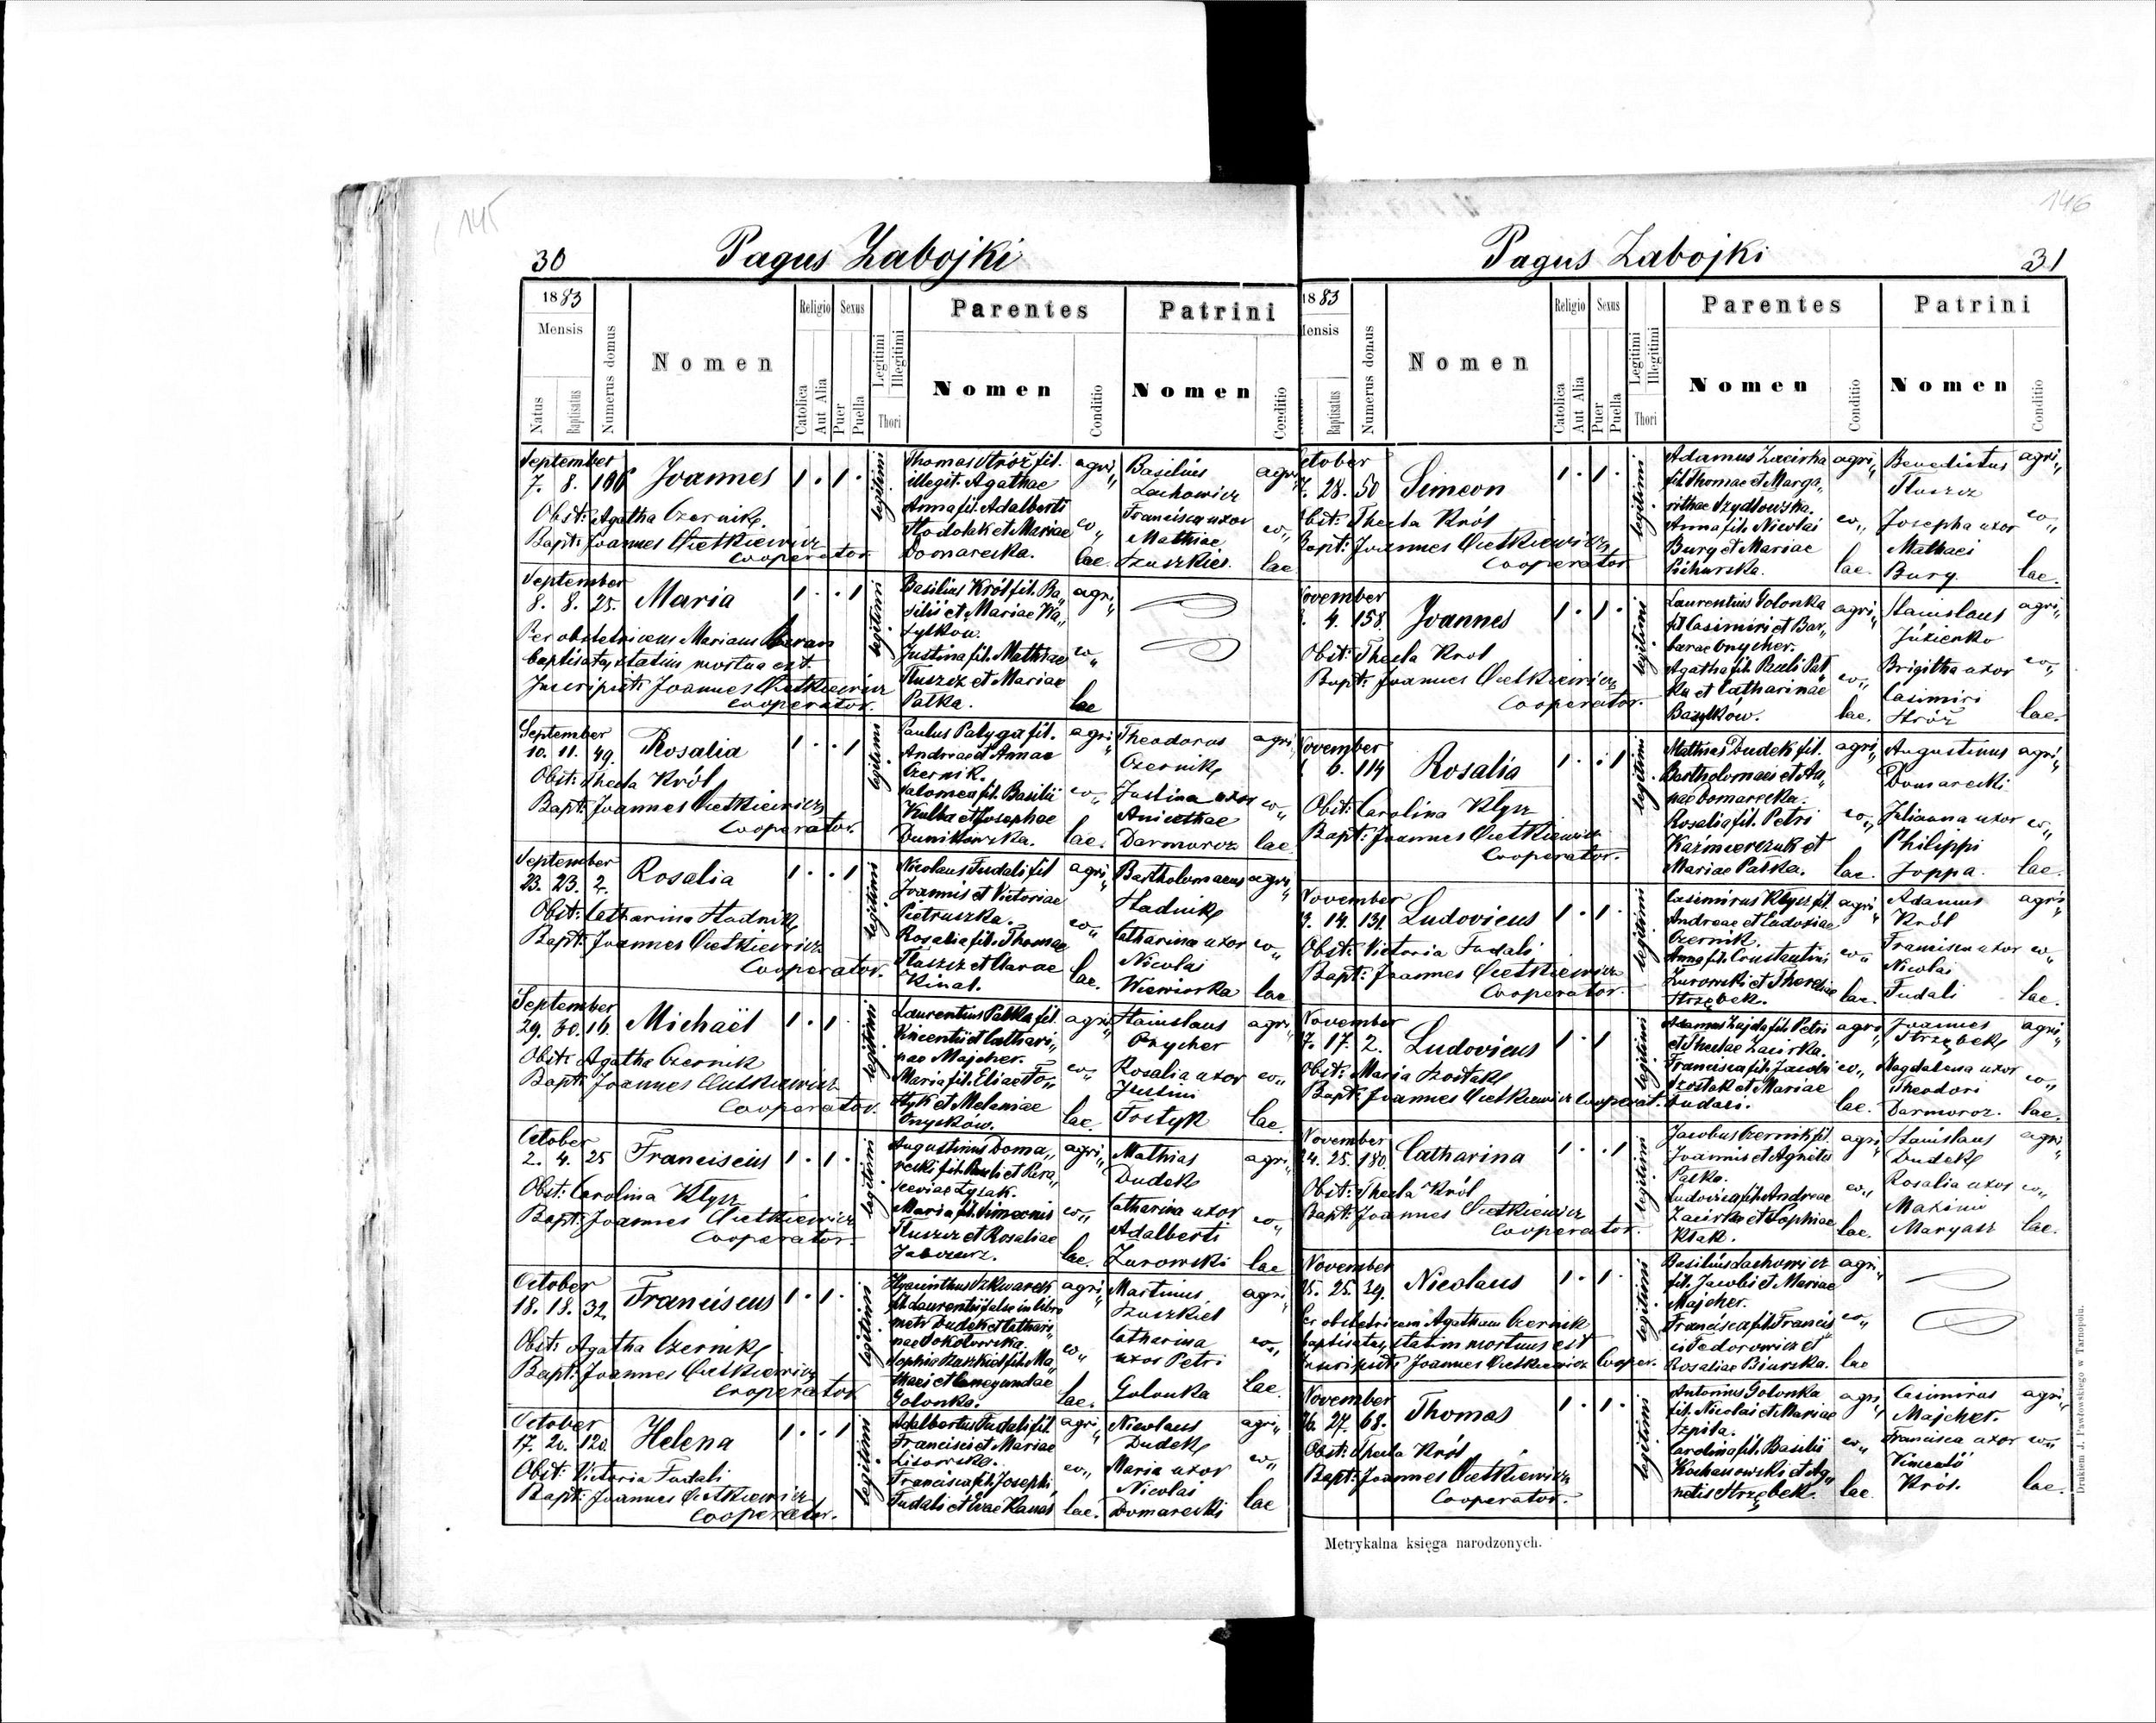 145
30
Pagus Zabojki
1883
Mensis
Natus
Baptisatus
Numerus domus
Nomen
Religio
Catolica
Aut Alia
Sexus
Puer
Puella
Legitimi
Illegitimi
Thori
Parentes
Nomen
Conditio
Patrini
Nomen
Conditio
September
7. 8. 106 Joannes 1 . 1 . legitimi
Obst: Agatha Czernik.
Bapt: Joannes Cietkiewicz
Cooperator.
Thomas Stróż fil.
illegit. Agathae
Anna fil. Adalberti
Stodolak et Mariae
Domarecka.
agri„
co„
lae.
Basilius
Lachowicz
Francisca uxor
Mathiae
Szuszkiel.
agri„
co„
lae
September
8. 8. 25. Maria 1 . . 1 legitimi
Per obstetricem Mariam Baran
baptisata, statim mortua est.
Inscripsit: Joannes Cietkiewicz
cooperator.
Basilius Król fil. Ba„
silii et Mariae Wa„
sylków.
Justina fil. Mathiae
Tłuszcz et Mariae
Pałka.
agri„
co„
lae
September
10. 11. 49. Rosalia 1 . . 1 legitimi
Obst: Thecla Król
Bapt: Joannes Cietkiewicz
Cooperator.
Paulus Patyga fil.
Andreae et Annae
Czernik.
Salomea fil. Basilii
Kulba et Josephae
Dunikowska.
agri„
co„
lae.
Theodorus
Czernik
Justina uxor
Anicethae
Darmoroz
agri„
co„
lae.
September
23. 23. 2. Rosalia 1 . . 1 legitimi
Obst: Catharina Stadnik
Bapt: Joannes Cietkiewicz
Cooperator.
Nicolaus Fudali fil
Joannis et Victoriae
Pietruszka.
Rosalia fil. Thomae
Tłuszcz et Clarae
Kinal.
agri„
co„
lae.
Bartholomaeus
Stadnik
Catharina uxor
Nicolai
Wiewiorka
agri„
co„
lae
September
29. 30. 16. Michaël 1 . 1 . legitimi
Obst: Agatha Czernik
Bapt: Joannes Cietkiewicz
Cooperator.
Laurentius Pałka fil.
Vincentii et Cathari„
nae Majcher.
Maria fil. Eliae Fo„
styk et Melaniae
Onysków.
agri„
co„
lae.
Stanislaus
Onycher
Rosalia uxor
Justini
Fostyk
agri„
co„
lae.
October
2. 4. 25 Franciscus 1 . 1 . legitimi
Obst: Carolina Kłysz
Bapt: Joannes Cietkiewicz
Cooperator.
Augustinus Doma„
recki fil. Pauli et Para„
sceviae Łysak.
Maria fil. Simeonis
Tłuszcz et Rosaliae
agri„
co„
lae.
Mathias
Dudek
Catharina uxor
Adalberti
Zurowski
agri„
co„
lae
October
18. 18. 32. Franciscus 1 . 1 . legitimi
Obst: Agatha Czernik
Bapt: Joannes Cietkiewicz
Cooperator
Hyacinthus Szkwarek
fil. Laurentii false in libro
metr. Dudek et Cathari„
nae Sokołowska.
Sophia Szuszkiel fil. Ma„
thaei et Cunegundae
Golonka.
agri„
co„
lae.
Martinus
Szuszkiel
Catharina
uxor Petri
Golonka
agri„
co„
lae.
October
17. 20. 120. Helena 1 . . 1 legitimi
Obst: Victoria Fudali
Bapt: Joannes Cietkiewicz
Cooperator.
Adalbertus Fudali fil.
Francisci et Mariae
Lisowska.
Francisca fil. Josephi
Fudali et Evae Kanas
agri„
co„
lae.
Nicolaus
Dudek
Maria uxor
Nicolai
Domarecki
agri„
co„
lae
146
Pagus Zabojki
31
1883
Mensis
Baptisatus
Numerus domus
Nomen
Religio
Catolica
Aut Alia
Sexus
Puer
Puella
Legitimi
Illegitimi
Thori
Parentes
Nomen
Conditio
Patrini
Nomen
Conditio
October
7. 28. 50 Simeon 1 . 1 . legitimi
Obst: Thecla Król
Bapt: Joannes Cietkiewicz
Cooperator
Adamus Zacirka
fil. Thomae et Marga„
rithae Szydłowska.
Anna fil. Nicolai
Bury et Mariae
Pichurska.
agri„
co„
lae.
Benedictus
Tłuszcz
Josepha uxor
Mathaei
Bury.
agri„
co„
lae.
November
3. 4. 158. Joannes 1 . 1 . legitimi
Obst: Thecla Krol
Bapt: Joannes Cietkiewicz
Cooperator.
Laurentius Golonka
fil. Casimiri et Bar„
barae Onycher.
Agatha fil. Pauli Pał„
ka et Catharinae
Bazylków.
agri„
co„
lae.
Stanislaus
Józienko
Brigitha uxor
Casimiri
Stróż
agri„
co„
lae.
November
6. 114 Rosalia 1 . . 1 legitimi
Obst: Carolina Kłysz
Bapt: Joannes Cietkiewicz
Cooperator.
Mathias Dudek fil.
Bartholomaei et An„
nae Domarecka.
Rosalia fil. Petri
Kazmierczuk et
Mariae Pałka.
agri„
co„
lae.
Augustinus
Domarecki
Julianna uxor
Philippi
Joppa.
agri„
co„
lae.
November
13. 14. 131. Ludovicus 1 . 1 . legitimi
Obst: Victoria Fudali
Bapt: Joannes Cietkiewicz
Cooperator.
Casimirus Kłysz fil.
Andreae et Eudoxiae
Czernik.
Anna fil. Constantini
Zurowski et Theresiae
Strzębek.
agri„
co„
lae.
Adamus
Król
Francisca uxor
Nicolai
Fudali
agri„
co„
lae.
November
17. 17. 2. Ludovicus 1 . 1 legitimi
Obst: Maria Szostak
Bapt: Joannes Cietkiewicz Cooperat.
Adamus Zajda fil. Petri
et Theclae Zacirka.
Francisca fil. Jacobi
Szostak et Mariae
Fudali.
agri„
co„
lae.
Joannes
Strzębek
Magdalena uxor
Theodori
Darmoroz.
agri„
co„
lae.
November
24. 25. 180. Catharina 1 . . 1 legitimi
Obst: Thecla Król
Bapt: Joannes Cietkiewicz
Cooperator.
Jacobus Czernik fil.
Joannis et Agnetis
Pałka.
Ludovica fil. Andreae
Zacirka et Sophiae
Ktak.
agri„
co„
lae.
Stanislaus
Dudek
Rosalia uxor
Maximi
Maryasz
agri„
co„
lae.
November
25. 25. 39. Nicolaus 1 . 1 . legitimi
Per obstetricem Agatham Czernik
baptisatus, statim mortuus est
Inscripsit: Joannes Cietkiewicz Cooper.
Basilius Lachowicz
fil. Jacobi et Mariae
Majcher.
Francisca fil. Francis„
ci Fedorowicz et
Rosaliae Biurska.
agri„
co„
lae
November
26. 27. 68. Thomas 1 . 1 . legitimi
Obst: Thecla Król
Bapt: Joannes Cietkiewicz
Cooperator.
Antonius Golonka
fil. Nicolai et Mariae
Szpila.
Carolina fil. Basilii
Kochanowski et Ag„
netis Strzębek.
agri„
co„
lae.
Casimirus
Majcher.
Francisca uxor
Vincentii
Król.
agri„
co„
lae.
Metrykalna księga narodzonych.
Drukiem J. Pawłowskiego w Tarnopolu.